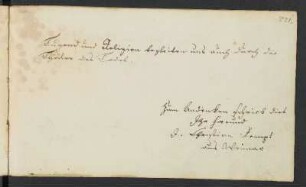 Tugend und Religion begleiten uns auch durch die
Schatten des Todes.
Zum Andenken schrieb dies
Ihr Freund
Christian
aus Weimar